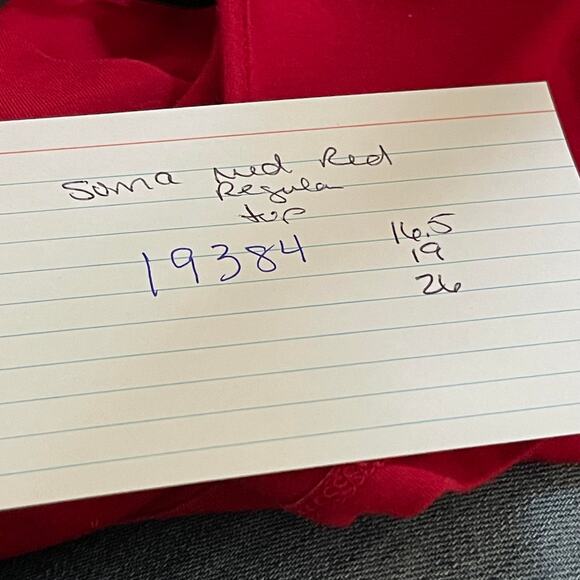 Soma Med Red
Regular
top
19384
16.5
19
26